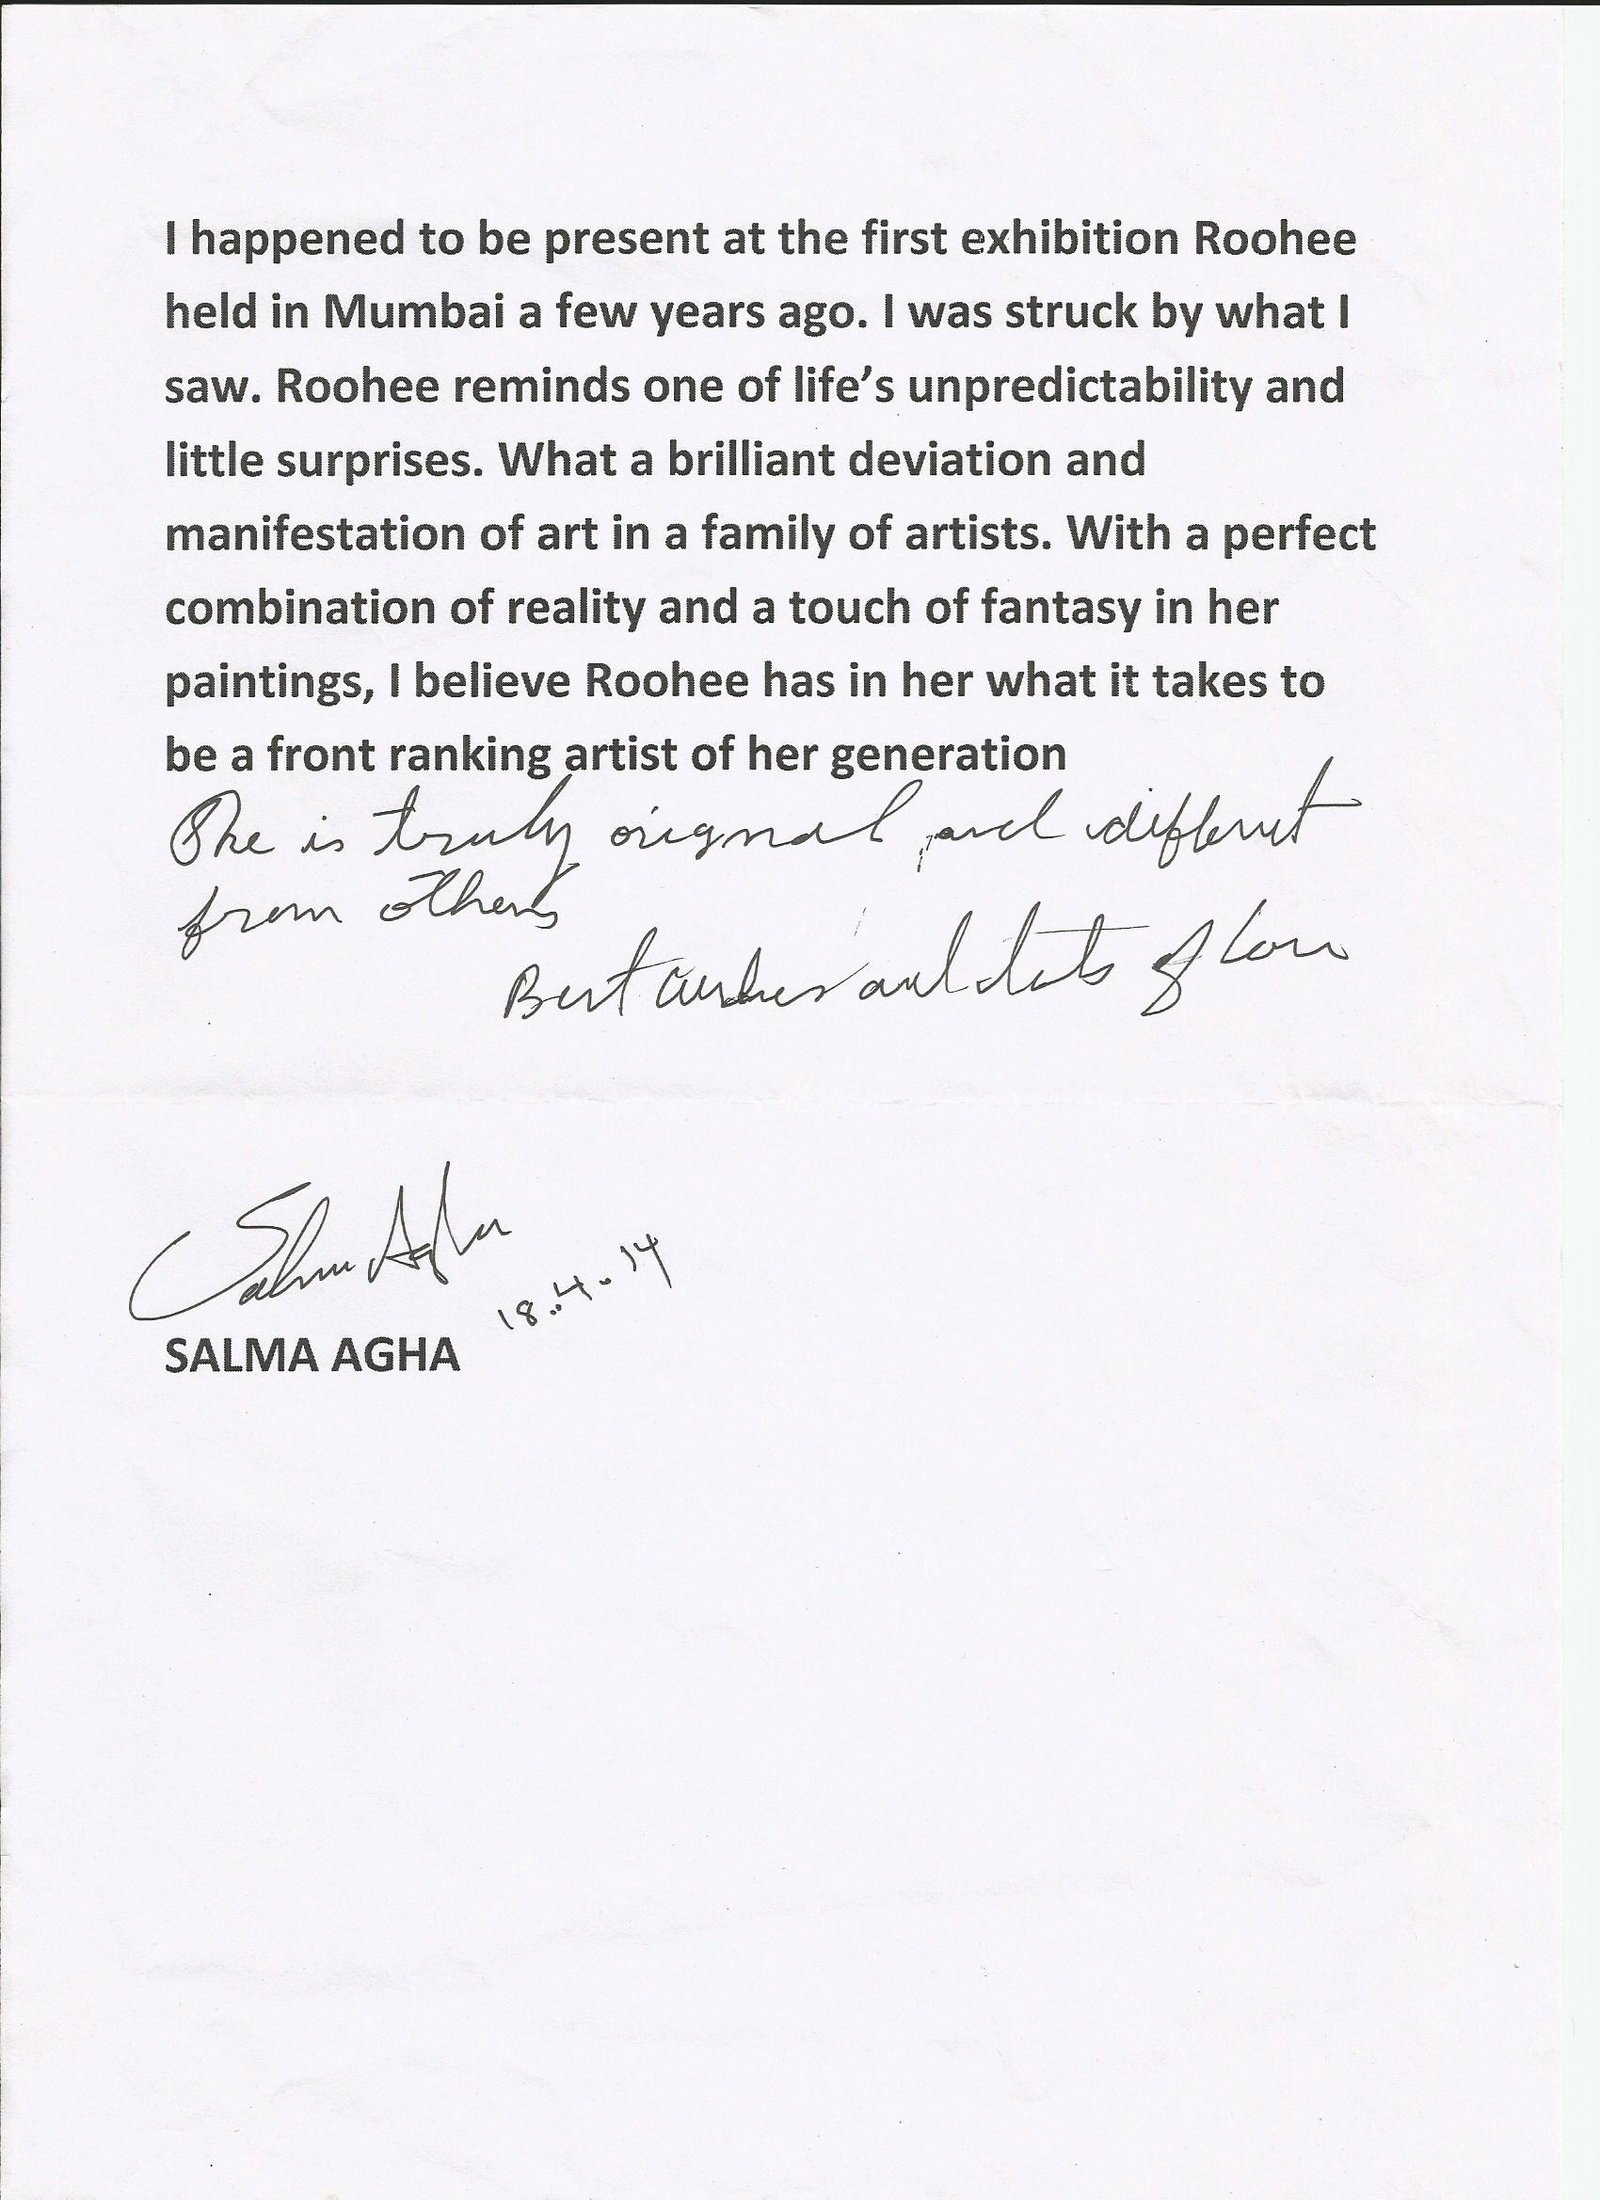 I happened to be present at the first exhibition Roohee
held in Mumbai a few years ago. I was struck by what I
saw. Roohee reminds one of life’s unpredictability and
little surprises. What a brilliant deviation and
manifestation of art in a family of artists. With a perfect
combination of reality and a touch of fantasy in her
paintings, I believe Roohee has in her what it takes to
be a front ranking artist of her generation
She is truly original and different
from others
Best wishes and lots of love
Salma Agha
18.4.14
SALMA AGHA